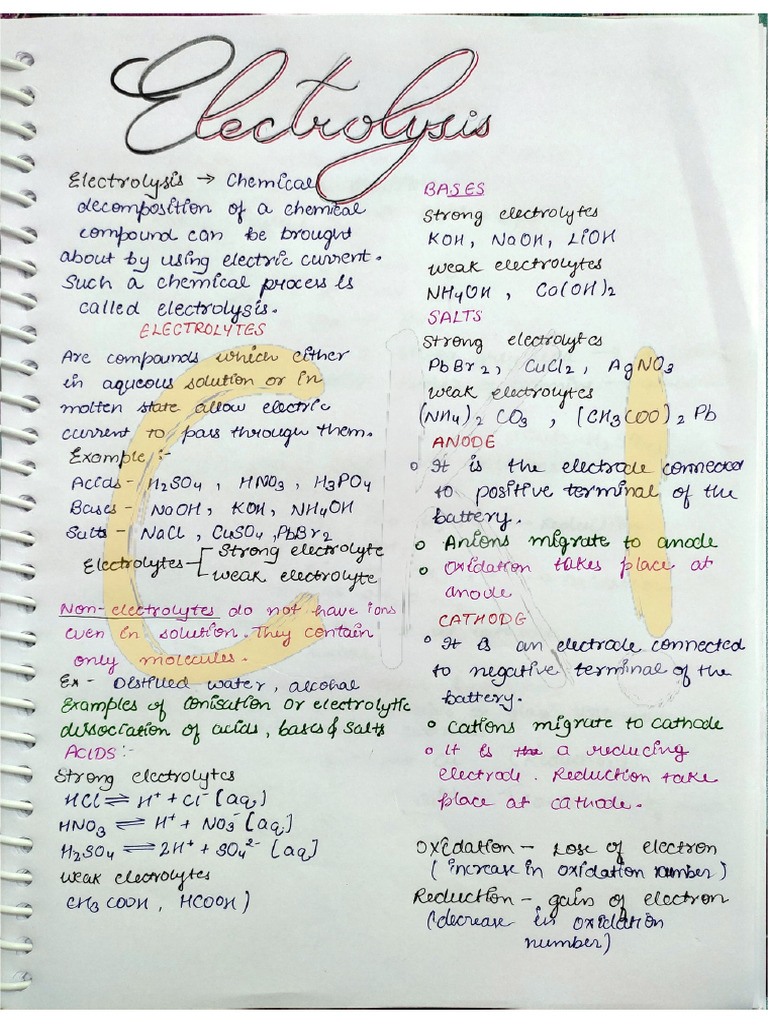 Electrolysis
Electrolysis → Chemical
decomposition of a chemical
compound can be brought
about by using electric current.
Such a chemical process is
called electrolysis.
ELECTROLYTES
Are compounds which either
in aqueous solution or in
molten state allow electric
current to pass through them.
Example :-
Acids - H2SO4 , HNO3 , H3PO4
Bases - NaOH, KOH, NH4OH
Salts - NaCl , CuSO4 , PbBr2
Electrolytes - Strong electrolyte
weak electrolyte
Non-electrolytes do not have ions
even in solution. They contain
only molecules.
Ex - Distilled water, alcohol
Examples of ionisation or electrolytic
dissociation of acids, bases & salts
ACIDS :-
Strong electrolytes
HCl ⇌ H+ + Cl- [aq]
HNO3 ⇌ H+ + NO3- [aq]
H2SO4 ⇌ 2H+ + SO4 2- [aq]
weak electrolytes
CH3COOH , HCOOH)
BASES
Strong electrolytes
KOH, NaOH, LiOH
weak electrolytes
NH4OH , Ca(OH)2
SALTS
Strong electrolytes
PbBr2, CuCl2, AgNO3
weak electrolytes
(NH4)2 CO3 , [CH3COO)2 Pb
ANODE
o It is the electrode connected
to positive terminal of the
battery.
o Anions migrate to anode
o Oxidation takes place at
anode
CATHODE
o It is an electrode connected
to negative terminal of the
battery.
o Cations migrate to cathode
o It is a reducing
electrode. Reduction take
place at cathode.
Oxidation - Lose of electron
( increase in oxidation number)
Reduction - gain of electron
(decrease in oxidation
number)